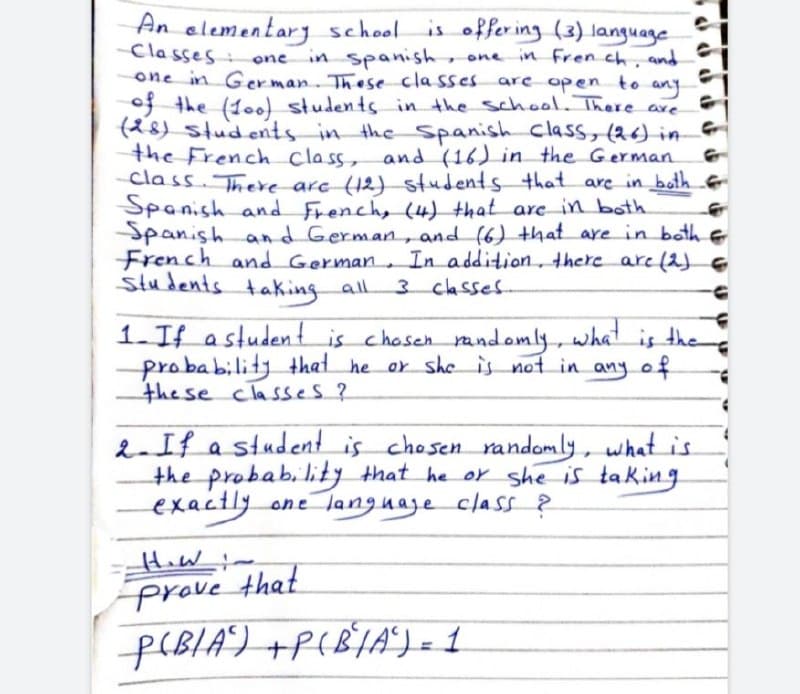 An elementary school is offering (3) language
Classes: one in spanish, one in French, and
one in German. These classes are open to any
of the (100) students in the school. There are
(28) students in the Spanish class, (26) in
the French Class, and (16) in the German
class. There are (12) students that are in both
Spanish and French, (4) that are in both
Spanish and German, and (6) that are in both
French and German. In addition, there are (2)
students taking all 3 classes.
1- If a student is chosen randomly, what is the
probability that he or she is not in any of
these classes?
2- If a student is chosen randomly, what is
the probability that he or she is taking
exactly one language class?
H.W :-
prove that
P(B/Aᶜ) + P(Bᶜ/Aᶜ) = 1